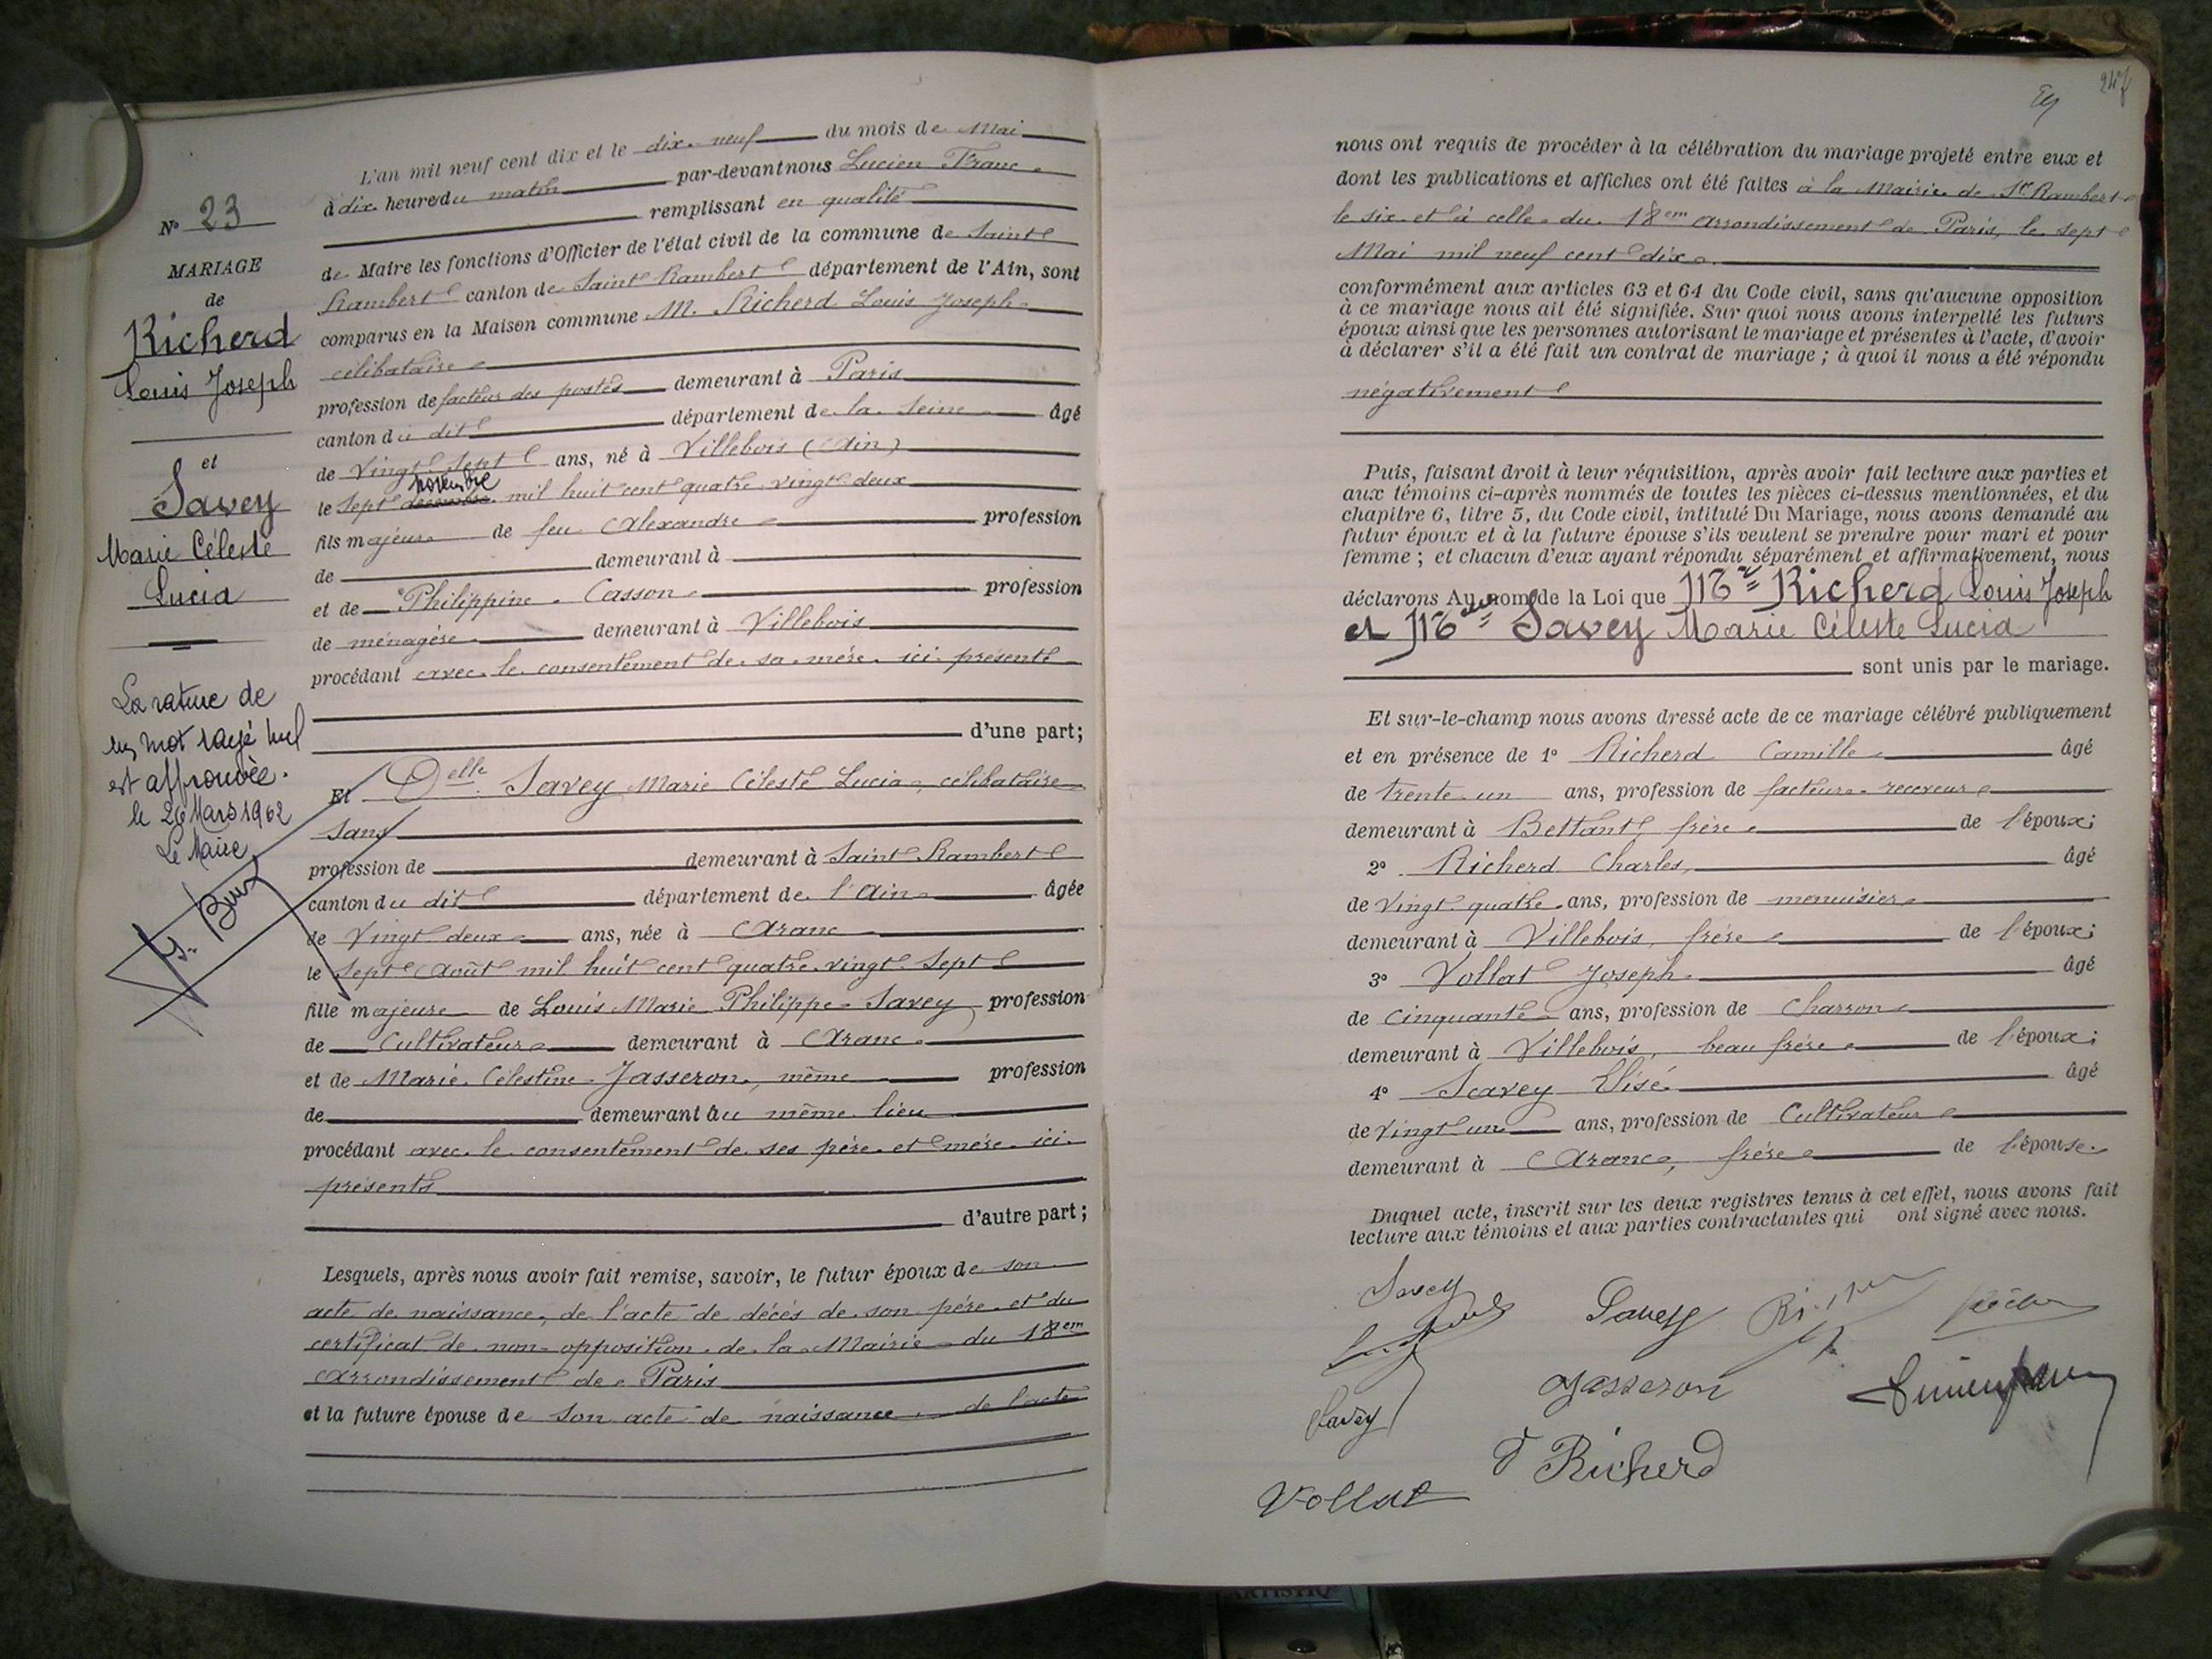 N° 23
MARIAGE
de
Richerd
Louis Joseph
et
Savey
Marie Céleste
Lucia
La rature de
un mot rayé nul
est approuvée.
le 26 Mars 1962
Le Maire,
L'an mil neuf cent dix et le dix-neuf du mois de Mai
à dix heure du matin par-devant nous Lucien Franc
remplissant en qualité
de Maire les fonctions d'Officier de l'état civil de la commune de Saint
Rambert canton de Saint Rambert département de l'Ain, sont
comparus en la Maison commune M. Richerd Louis Joseph
célibataire
profession de facteur des postes demeurant à Paris
canton du dit département de la Seine âgé
de Vingt Sept ans, né à Villebois (Ain)
novembre
le Sept decembre mil huit cent quatre vingt deux
fils majeur de feu Alexandre profession
de demeurant à
et de Philippine Casson profession
de ménagère demeurant à Villebois
procédant avec le consentement de sa mère ici présente
d'une part;
Et Delle Savey Marie Céleste Lucia, célibataire
Sans
profession de demeurant à Saint Rambert
canton du dit département de l'Ain âgée
de Vingt deux ans, née à Aranc
le Sept Août mil huit cent quatre vingt Sept
fille majeure de Louis Marie Philippe Savey profession
de Cultivateur demeurant à Aranc
et de Marie Célestine Jasseron, même profession
de demeurant au même lieu
procédant avec le consentement de ses père et mère ici
présents
d'autre part;
Lesquels, après nous avoir fait remise, savoir, le futur époux de son
acte de naissance, de l'acte de décès de son père et du
certificat de non-opposition de la Mairie du 18em
arrondissement de Paris
et la future épouse de son acte de naissance de l'acte
247
nous ont requis de procéder à la célébration du mariage projeté entre eux et
dont les publications et affiches ont été faites à la Mairie de St Rambert
le six et à celle du 18em arrondissement de Paris, le sept
Mai mil neuf cent dix
conformément aux articles 63 et 64 du Code civil, sans qu'aucune opposition
à ce mariage nous ait été signifiée. Sur quoi nous avons interpellé les futurs
époux ainsi que les personnes autorisant le mariage et présentes à l'acte, d'avoir
à déclarer s'il a été fait un contrat de mariage; à quoi il nous a été répondu
négativement
Puis, faisant droit à leur réquisition, après avoir fait lecture aux parties et
aux témoins ci-après nommés de toutes les pièces ci-dessus mentionnées, et du
chapitre 6, titre 5, du Code civil, intitulé Du Mariage, nous avons demandé au
futur époux et à la future épouse s'ils veulent se prendre pour mari et pour
femme; et chacun d'eux ayant répondu séparément et affirmativement, nous
déclarons Au nom de la Loi que Mr Richerd Louis Joseph
et Melle Savey Marie Céleste Lucia
sont unis par le mariage.
Et sur-le-champ nous avons dressé acte de ce mariage célébré publiquement
et en présence de 1° Richerd Camille âgé
de trente-un ans, profession de facteur-receveur
demeurant à Bettant, frère de l'époux;
2° Richerd Charles, âgé
de Vingt quatre ans, profession de menuisier
demeurant à Villebois, frère de l'époux;
3° Vollat Joseph âgé
de Cinquante ans, profession de Charron
demeurant à Villebois, beau frère de l'époux;
4° Savey Elisé âgé
de Vingt un ans, profession de Cultivateur
demeurant à Aranc, frère de l'épouse.
Duquel acte, inscrit sur les deux registres tenus à cet effet, nous avons fait
lecture aux témoins et aux parties contractantes qui ont signé avec nous.
Savey
Savey
Jasseron
Savey
Richerd
Vollat